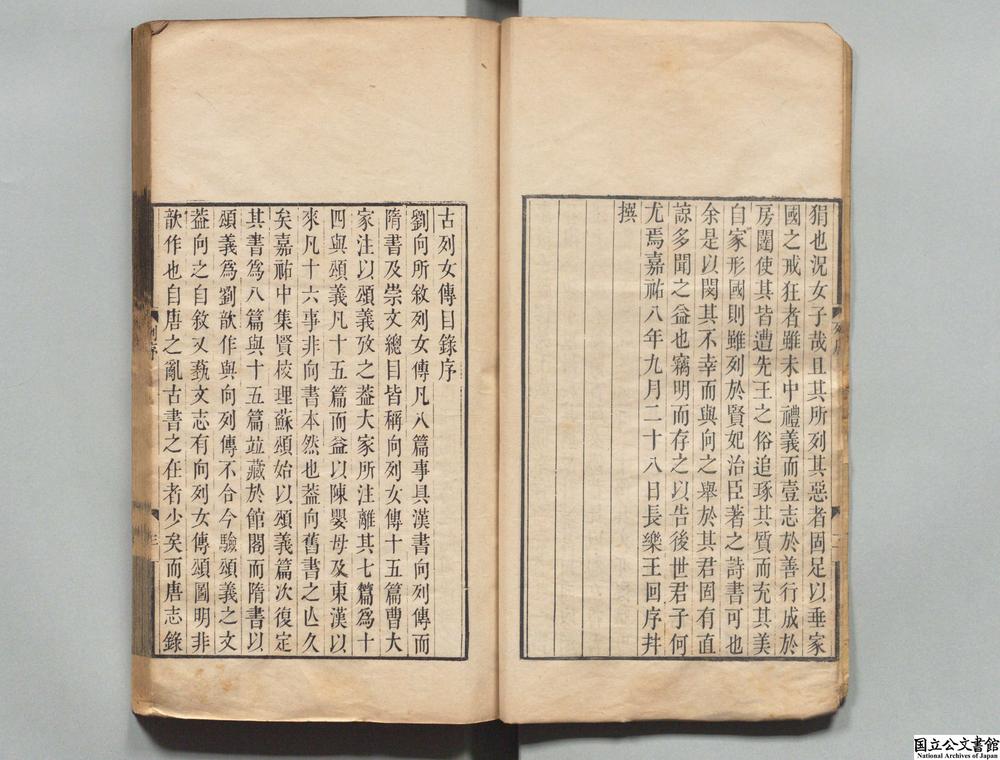 狷也況女子哉且其所列其惡者固足以垂家
國之戒狂者雖未中禮義而壹志於善行成於
房闥使其皆遭先王之俗追琢其質而充其美
自家形國則雖列於賢妃治臣著之詩書可也
余是以閔其不幸而與向之舉於其君固有直
諒多聞之益也竊明而存之以告後世君子何
尤焉嘉祐八年九月二十八日長樂王回序幷
撰
古列女傳目錄序
劉向所敘列女傳凡八篇事具漢書向列傳而
隋書及崇文總目皆稱向列女傳十五篇曹大
家注以頌義攷之葢大家所注離其七篇爲十
四與頌義凡十五篇而益以陳嬰母及東漢以
來凡十六事非向書本然也葢向舊書之亾久
矣嘉祐中集賢校理蘇頌始以頌義篇次復定
其書爲八篇與十五篇竝藏於館閣而隋書以
頌義爲劉歆作與向列傳不合今驗頌義之文
葢向之自敘又藝文志有向列女傳頌圖明非
歆作也自唐之亂古書之在者少矣而唐志錄
列序
三
国立公文書館
National Archives of Japan